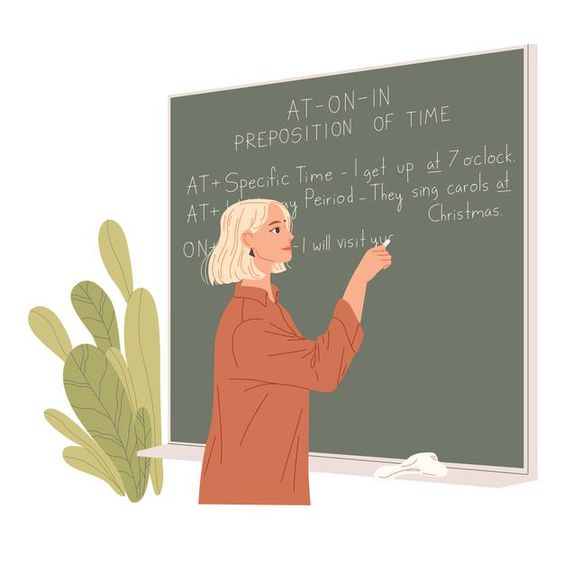 AT-ON-IN
PREPOSITION OF TIME
AT+Specific Time - I get up at 7 o'clock.
AT+ Peiriod - They sing carols at
Christmas.
ON - I will visit